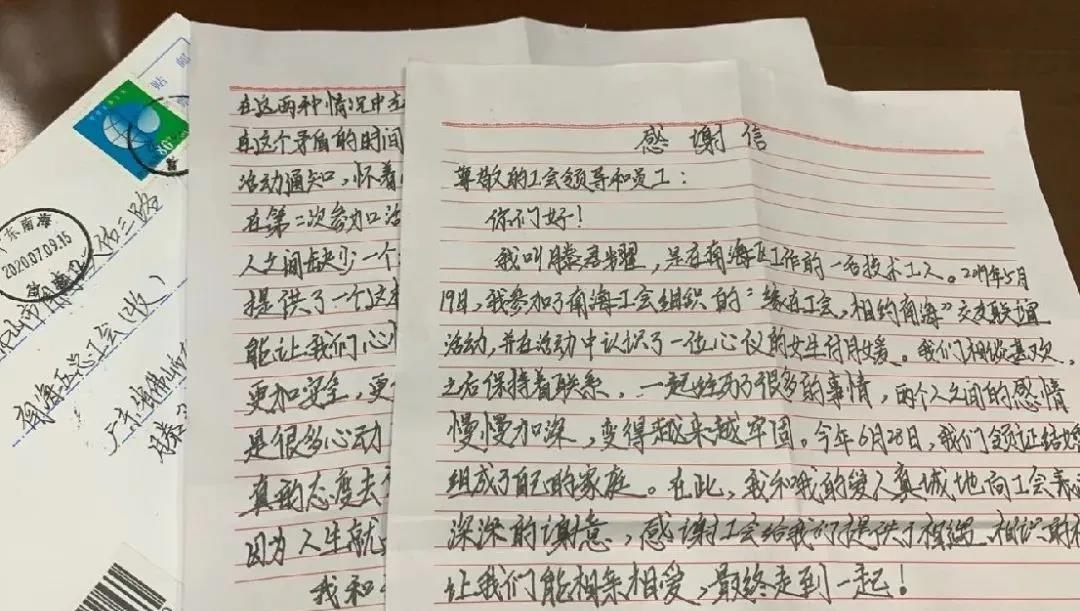 感谢信
尊敬的工会领导和员工：
你们好！
我叫滕君耀，是在南海区工作的一名技术工人。2019年5月
19日，我参加了南海工会组织的“缘在工会，相约南海”交友联谊
活动，并在活动中认识了一位心仪的女生付月媛。我们相谈甚欢，
之后保持着联系，一起经历了很多的事情，两个人之间的感情
慢慢加深，变得越来越牢固。今年6月28日，我们领证结婚
组成了自己的家庭。在此，我和我的爱人真诚地向工会表
深深的谢意，感谢工会给我们提供了相遇、相识
让我们能相亲相爱，最终走到一起！
在这两种情况中
在这个矛盾的时间
活动通知，怀着
在第二次参加
人之间缺少一个
提供了一个这
能让我们心
更加安全，更
是很多心动
真的态度去
因为人生就
我和
贴邮
东南海
2020.07.09.15
南海区总工会（收）
广东佛山